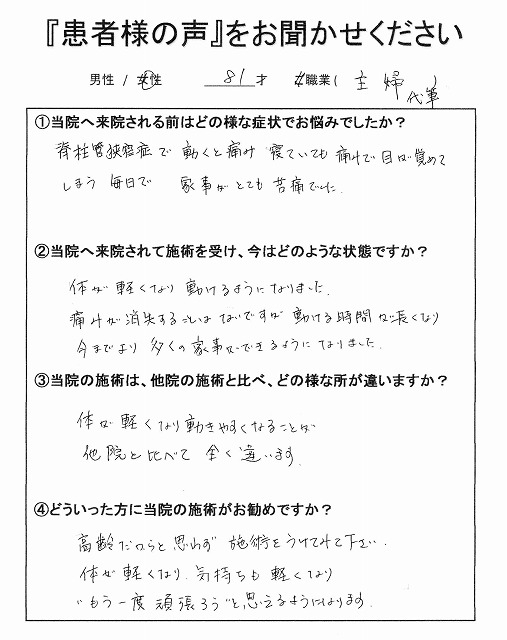 『患者様の声』をお聞かせください
男性 / 女性 81才 職業( 主婦 )
代筆
①当院へ来院される前はどの様な症状でお悩みでしたか？
脊柱管狭窄症で 動くと痛み 寝ていても 痛みで目が覚めて
しまう 毎日で 家事がとても 苦痛でした.
②当院へ来院されて施術を受け、今はどのような状態ですか？
体が 軽くなり 動けるようになりました.
痛みが 消失することは ないですが 動ける時間が長くなり
今までより 多くの 家事ができるようになりました.
③当院の施術は、他院の施術と比べ、どの様な所が違いますか？
体が 軽くなり動きやすくなることが
他院と比べて 全く違います.
④どういった方に当院の施術がお勧めですか？
高齢だからと思わず 施術をうけてみて下さい.
体が 軽くなり. 気持ちも 軽くなり
"もう一度 頑張ろう"と思えるようになります.